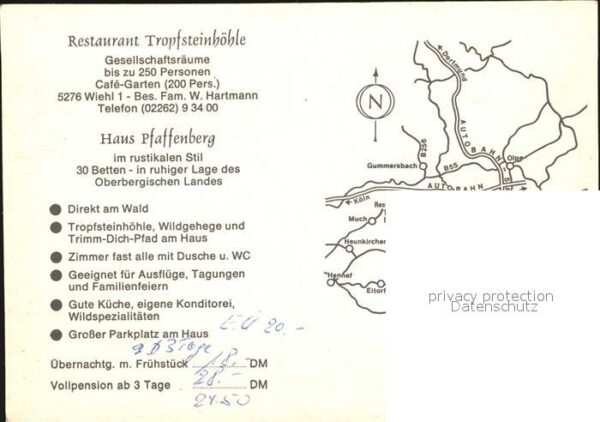 Restaurant Tropfsteinhöhle
Gesellschaftsräume
bis zu 250 Personen
Café-Garten (200 Pers.)
5276 Wiehl 1 - Bes. Fam. W. Hartmann
Telefon (02262) 9 34 00
Haus Pfaffenberg
im rustikalen Stil
30 Betten - in ruhiger Lage des
Oberbergischen Landes
Direkt am Wald
Tropfsteinhöhle, Wildgehege und
Trimm-Dich-Pfad am Haus
Zimmer fast alle mit Dusche u. WC
Geeignet für Ausflüge, Tagungen
und Familienfeiern
Gute Küche, eigene Konditorei,
Wildspezialitäten
Großer Parkplatz am Haus
EÜ 20.-
3 Tage
Übernachtg. m. Frühstück 18.- DM
Vollpension ab 3 Tage 28.- DM
24.50
Dortmund
N
AUTOBAHN
B256
Gummersbach
B55
Olpe
AUTOBAHN
Köln
Res
Much
Neunkirchen
Hennef
Eitorf
privacy protection
Datenschutz